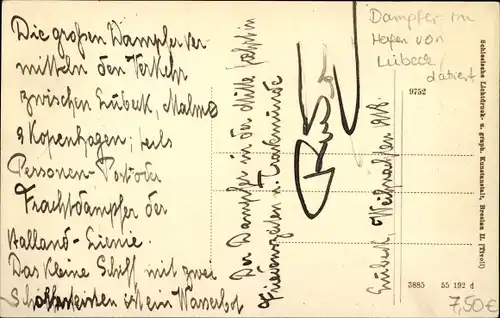 Die großen Dampfer ver
mitteln den Verkehr
zwischen Lübeck, Malmö
& Kopenhagen; teils
Personen- Post oder
Frachtdampfer der
Halland-Linie.
Das kleine Schiff mit zwei
Schornsteinen ist ein Wasserbot
Der Dampfer in der Mitte fährt in
Friedenszeiten n. Travemünde
Lübeck, Weihnachten 1918.
Dampfer im
Hafen von
Lübeck,
datiert
9752
Schlesische Lichtdruck- u. graph. Kunstanstalt, Breslau II. (Tivoli)
3885 55 192 d
7,50€